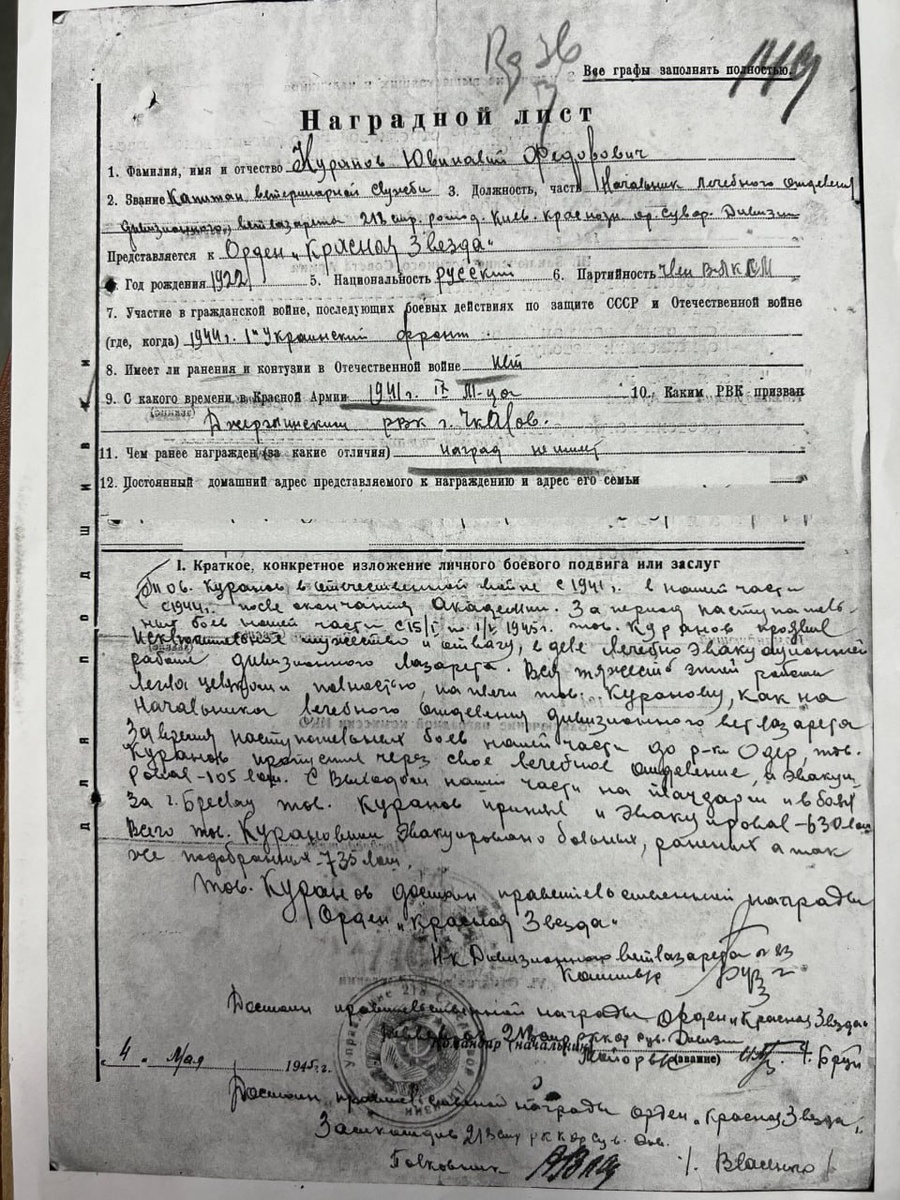 Все графы заполнять полностью.
149
Наградной лист
1. Фамилия, имя и отчество Куранов Ювиналий Федорович
2. Звание Капитан ветеринарной службы 3. Должность, часть Начальник лечебного отделения
дивизионного ветлазарета 218 стр. Киев. краснозн. ор. Сувор. Дивизии
Представляется к Орден „Красная Звезда“
Год рождения 1922 5. Национальность русский 6. Партийность член ВЛКСМ
7. Участие в гражданской войне, последующих боевых действиях по защите СССР и Отечественной войне
(где, когда) 1944 г. 1й Украинский фронт
8. Имеет ли ранения и контузии в Отечественной войне нет
9. С какого времени в Красной Армии 1941 г. М-ца 10. Каким РВК призван
Дзержинским рвк г. Чкалов.
11. Чем ранее награжден (за какие отличия) наград не имеет
12. Постоянный домашний адрес представляемого к награждению и адрес его семьи
для подшивки
I. Краткое, конкретное изложение личного боевого подвига или заслуг
Тов. Куранов в отечественной войне с 1941 г. в нашей части
с 1944 г. после окончания Академии. За период наступатель-
ных боев нашей части с 15/I по 1/V 1945 г. тов. Куранов проявил
исключительное мужество и отвагу, в деле лечебно эвакуационной
работе дивизионного лазарета. Вся тяжесть этой работы
легла целиком и полностью, на плечи тов. Куранову, как на
Начальника лечебного отделения дивизионного ветлазарета
За время наступательных боев нашей части до р-ки Одер, тов.
Куранов пропустил через свое лечебное отделение, и эвакуи
ровал - 105 лош. С выходом нашей части на плацдарм и в боях
за г. Бреслау тов. Куранов принял и эвакуировал - 630 лош
Всего тов. Курановым эвакуировано больных, раненых а так
же подобранных - 735 лош.
Тов. Куранов достоин правительственной награды
Орден „Красная Звезда“
Н-к Дивизионного ветлазарета
Достоин правительственной награды Орден „Красная Звезда“
Командир (начальник)
Майор (звание)
4. Мая 1945 г.
Достоин правительственной награды орден „Красная Звезда“
Полковник